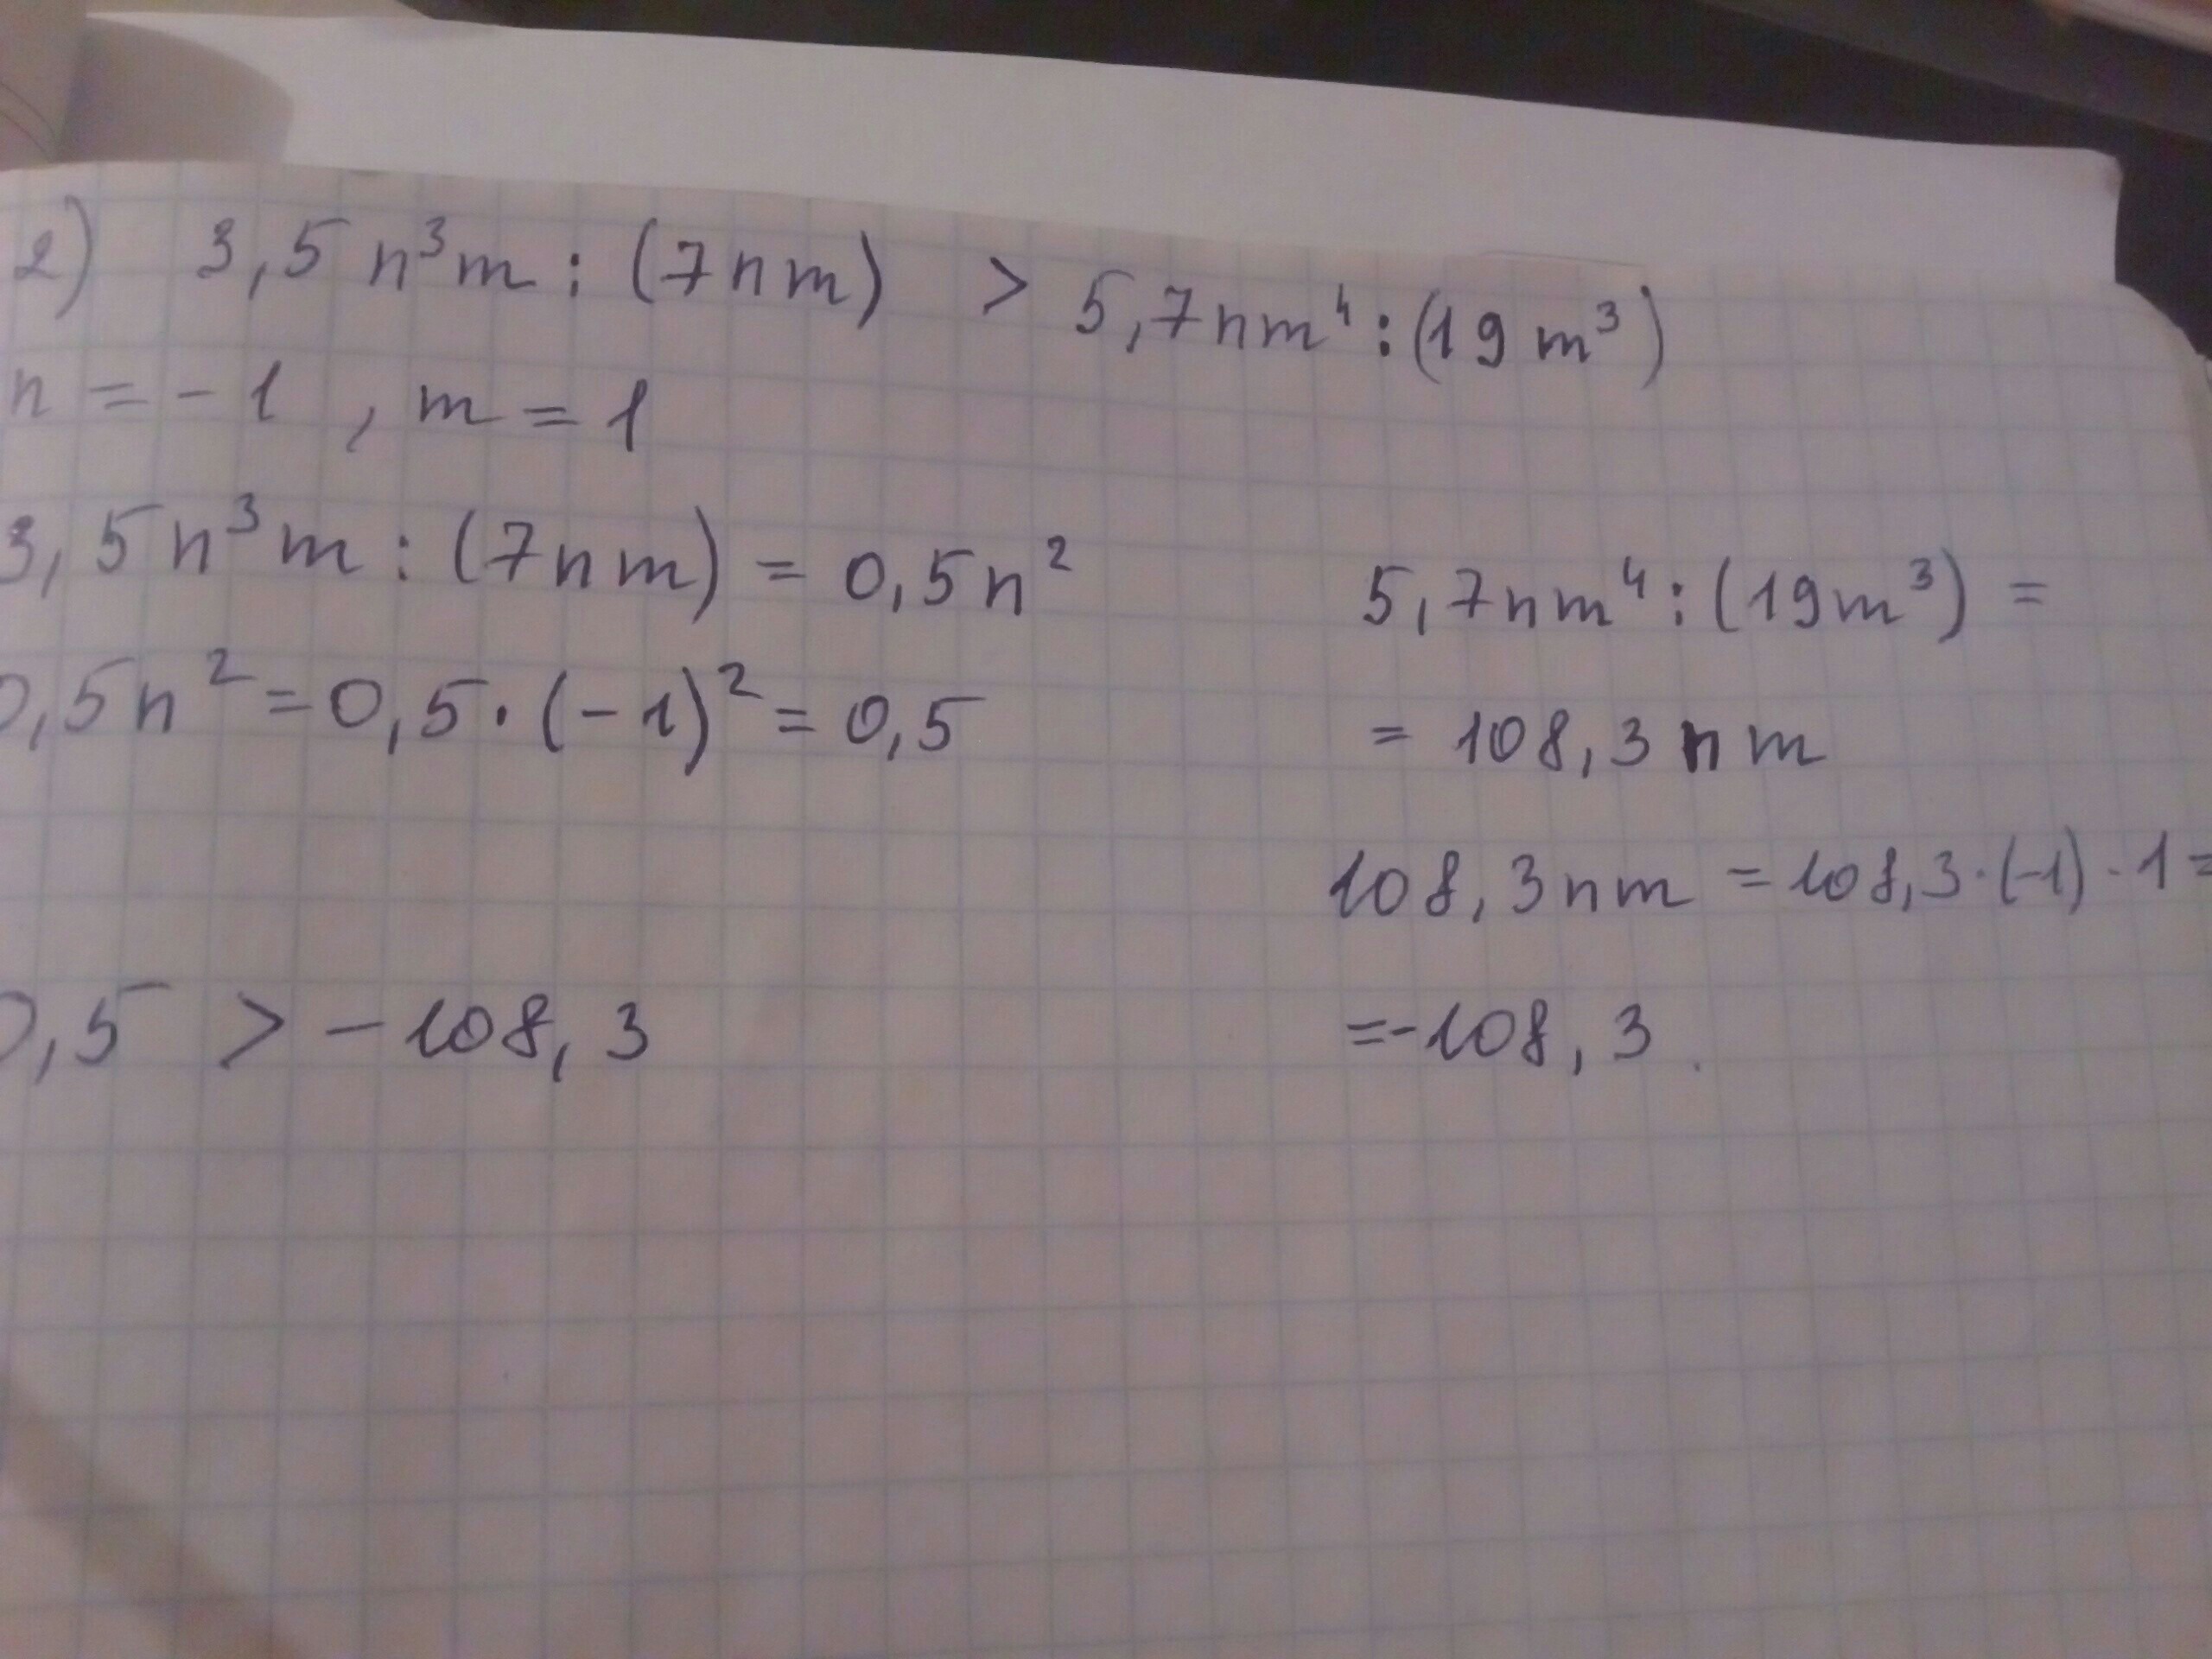 2) 3,5 n³m : (7nm) > 5,7nm⁴ : (19m³)
n = -1 , m = 1
3,5n³m : (7nm) = 0,5n²
0,5n² = 0,5 · (-1)² = 0,5
5,7nm⁴ : (19m³) =
= 108,3 nm
108,3nm = 108,3 · (-1) · 1 =
= -108,3
0,5 > -108,3